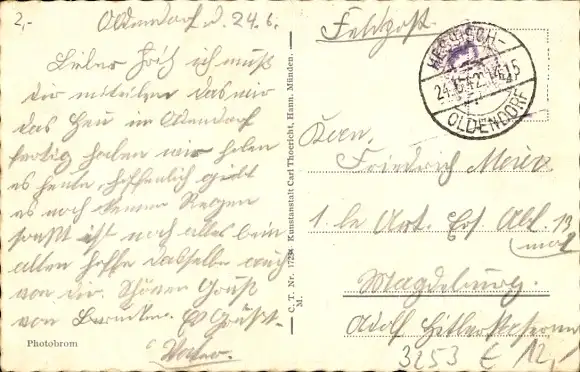 2,-
Oldendorf d. 24.6.
Lieber Fritz ich muß
dir mitteilen das wir
das Heu in Oldendorf
fertig haben wir holen
es heute hoffentlich gibt
es noch keinen Regen
sonst ist noch alles beim
alten hoffe dasselbe auch
von dir. Schönen Gruß
von Es Grüßt
Vater.
Photobrom
C. T. Nr. 17234 Kunstanstalt Carl Thoericht, Hann. Münden.
M.
Feldpost
HESSISCH-
24.6.42
OLDENDORF
Herrn
Friedrich Meier
1 le Art. Ers Abt. 13
mot
Magdeburg.
Adolf Hitlerkaserne
3253 E 12,-